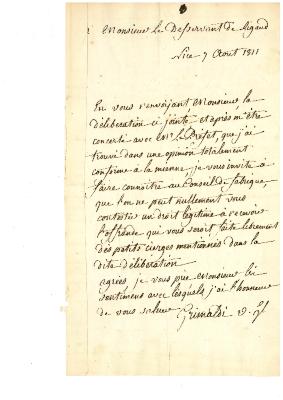 Monsieur Le Desservant de Rigaud
Nice 7 Aout 1811
En vous renvoyant Monsieur la
déliberation ci jointe et après m'être
concerté avec Mr le Préfet, que j'ai
trouvé dans une opinion totalement
conforme à la mienne, je vous invite à
faire connoître au Conseil de fabrique,
que l'on ne peut nullement vous
contester un droit légitime à recevoir
l'offrande qui vous seroit faite librement
des petits cierges mentionnés dans la
dite déliberation
agréés, je vous prie, Monsieur les
sentimens avec lesquels j'ai l'honneur
de vous saluer Grimaldi v. gl